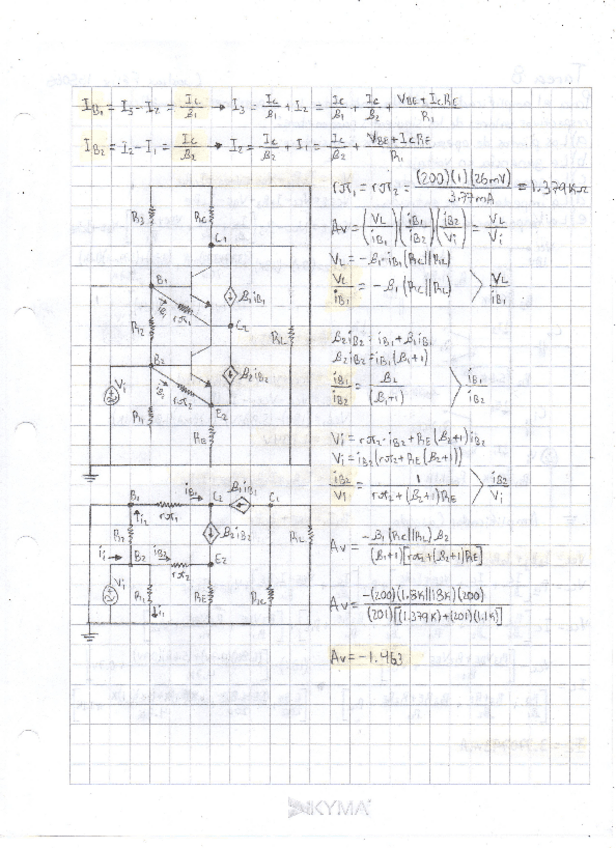 I_B1 = I3 - I2 = Ic/β1 → I3 = Ic/β1 + I2 = Ic/β1 + Ic/β2 + (VBE + IcRE)/R1
I_B2 = I2 - I1 = Ic/β2 → I2 = Ic/β2 + I1 = Ic/β2 + (VBE + IcRE)/R1
rπ1 = rπ2 = (200)(1)(26mV)/3.77mA = 1.379KΩ
Av = (VL/iB1)(iB1/iB2)(iB2/Vi) = VL/Vi
VL = -β1·iB1(RC||RL)
VL/iB1 = -β1(RC||RL) > VL/iB1
β2iB2 = iB1 + β1iB1
β2iB2 = iB1(β1+1)
iB1/iB2 = β2/(β1+1) > iB1/iB2
Vi = rπ2·iB2 + RE(β2+1)iB2
Vi = iB2(rπ2 + RE(β2+1))
iB2/Vi = 1/(rπ2 + (β2+1)RE) > iB2/Vi
Av = -β1(RC||RL)β2/((β1+1)[rπ2 + (β2+1)RE])
Av = -(200)(1.8K||18K)(200)/((201)[(1.379K)+(201)(1.1K)])
Av = -1.463
R3
RC
C1
B1
β1iB1
iB1
rπ1
C2
R2
RL
B2
β2iB2
Vi
iB2
rπ2
E2
R1
RE
B1
iB1
C2
β1iB1
C1
rπ1
i2
R2
β2iB2
RL
ii
B2
iB2
E2
rπ2
Vi
R1
i1
RE
RC
KYMA